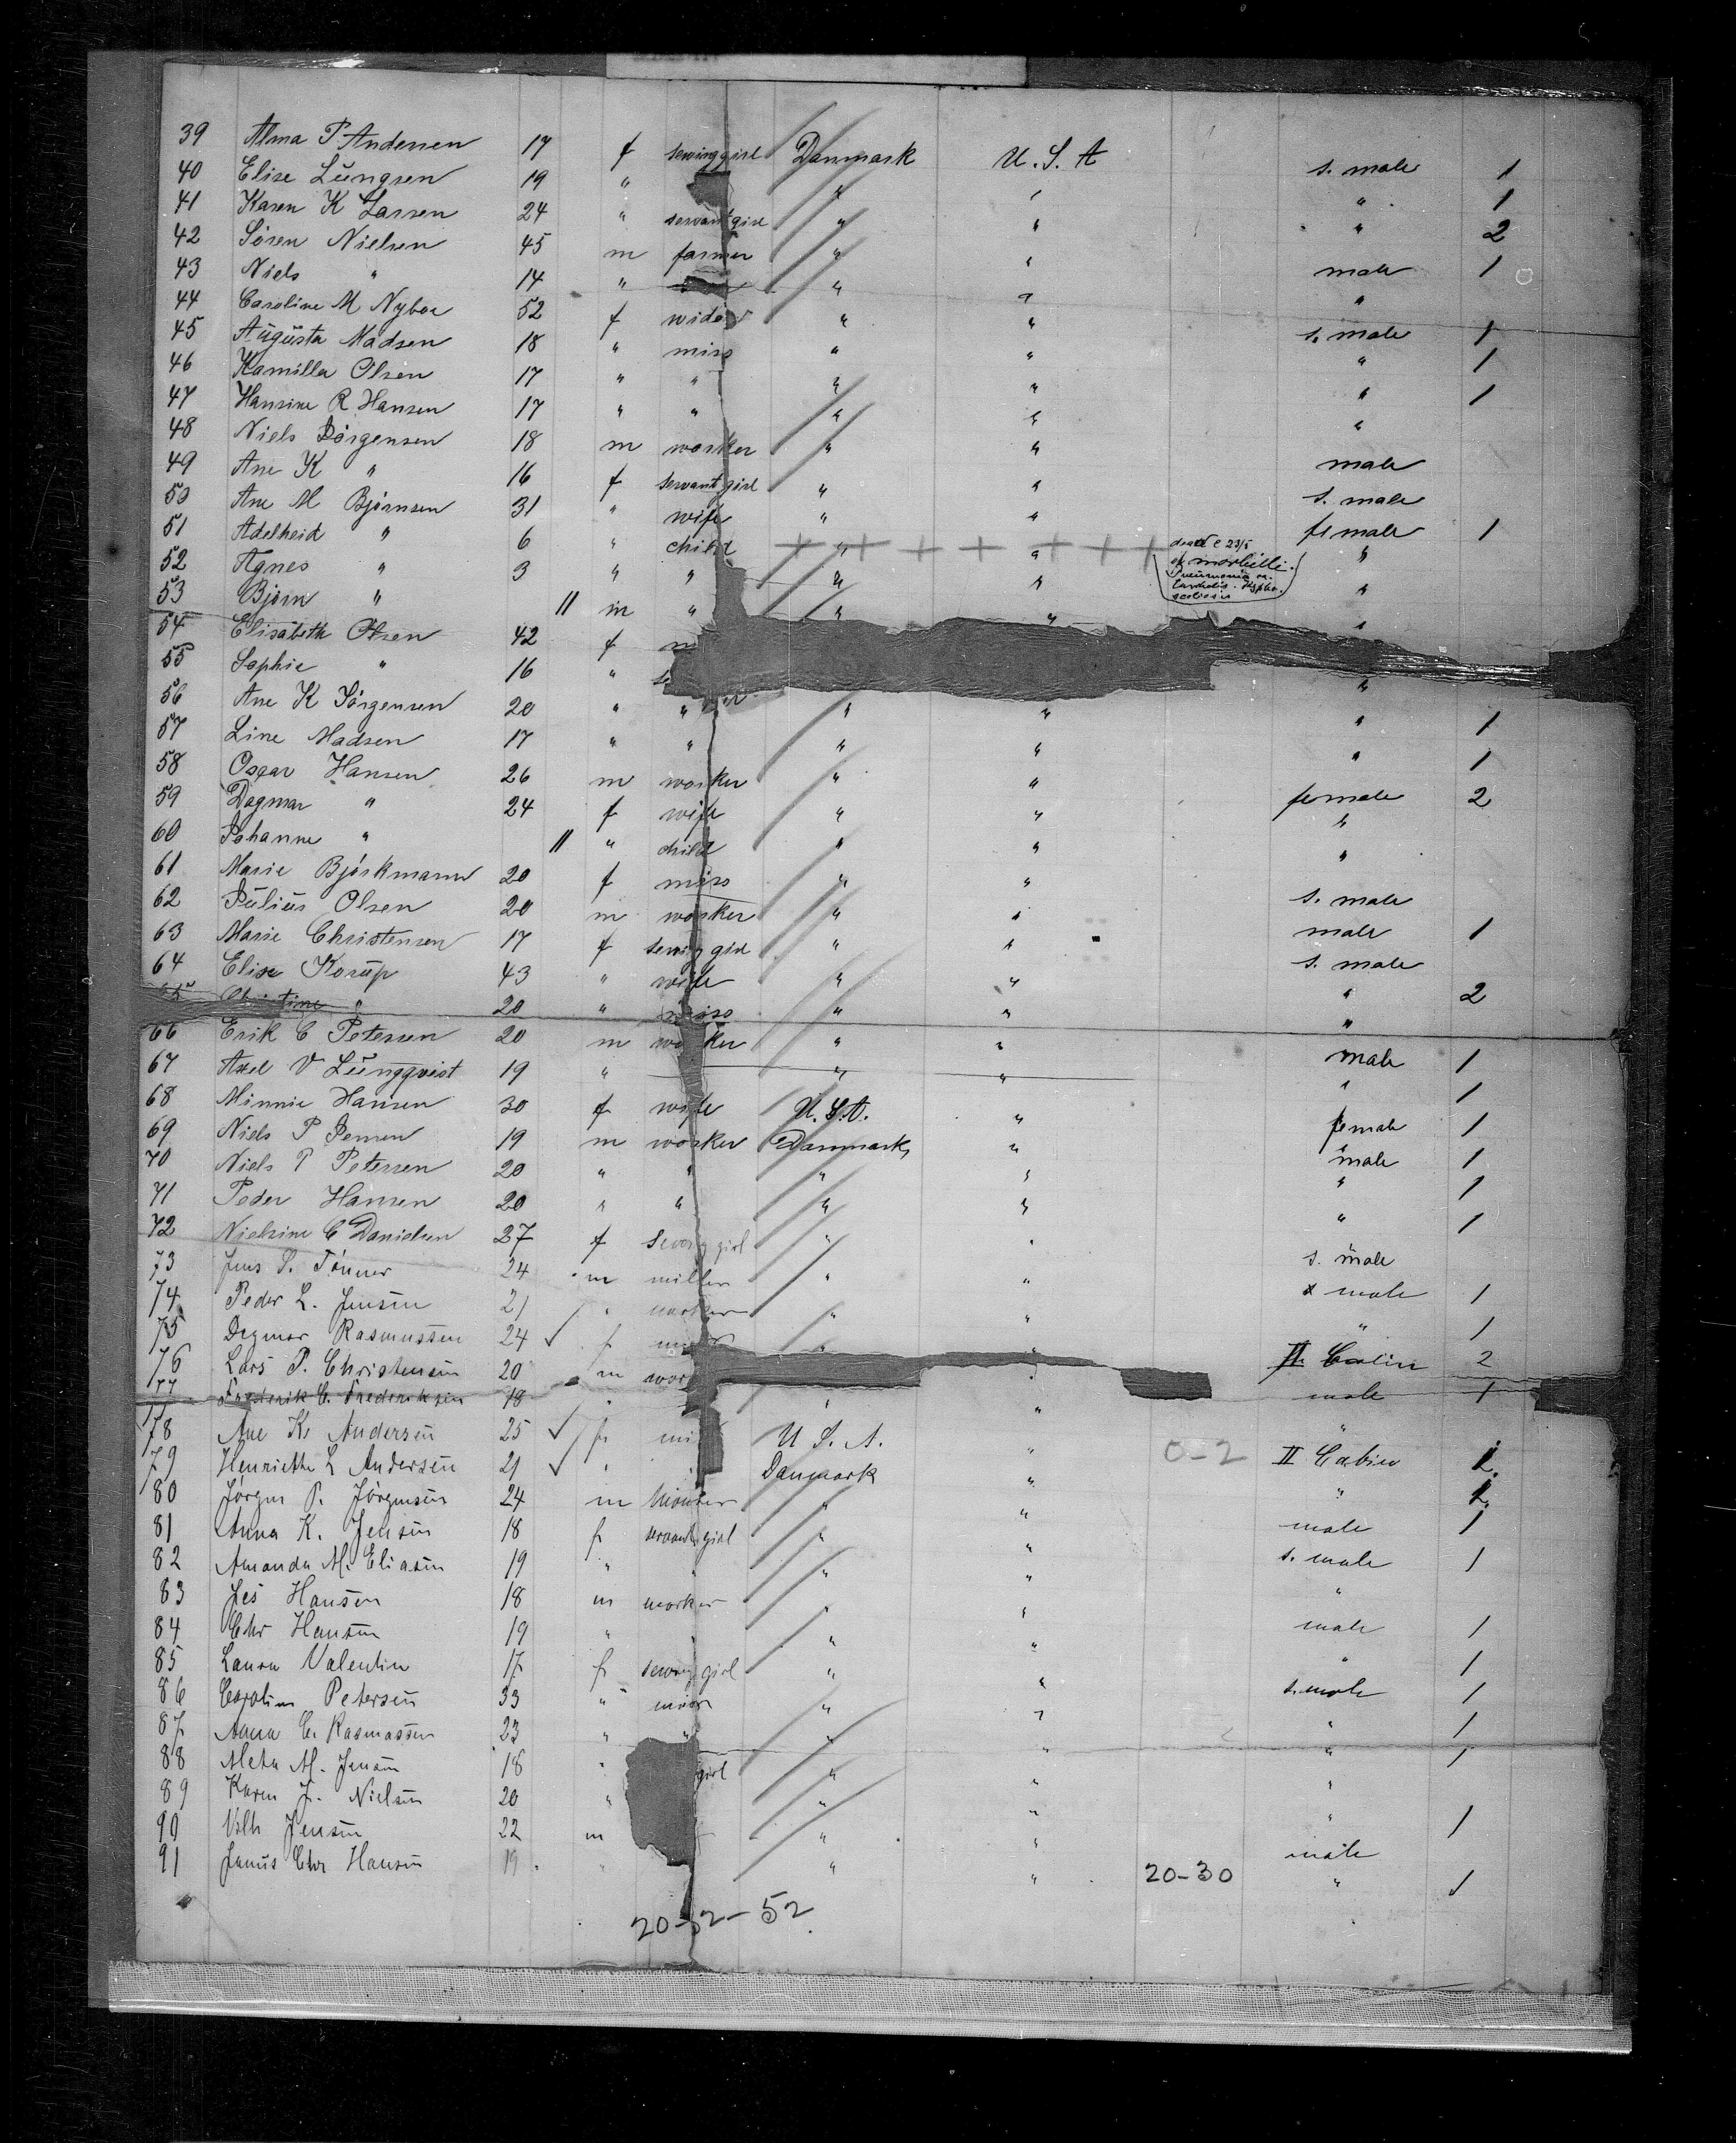 39 Alma P Andersen 17 f sewing girl Danmark U.S.A s. male 1
40 Elise Lüngsen 19 " " " " 1
41 Karen K Larsen 24 " servant girl " " " 2
42 Sören Nielsen 45 m farmer " " male 1
43 Niels " 14 " " " "
44 Caroline M Nyboe 52 f widow " " s. male 1
45 Augüsta Madsen 18 " miss " " " 1
46 Kamilla Olsen 17 " " " " " 1
47 Hansine R Hansen 17 " " " " "
48 Niels Jörgensen 18 m worker " " male
49 Ane K " 16 f servant girl " " s. male
50 Ane M Björnsen 31 " wife " " female 1
51 Adelheid " 6 " child " " dead 23/5 of morbilli. Pneumonia "
52 Agnes " 3 " " " " "
53 Björn " 11 m " " " "
54 Elisabeth Olsen 42 f
55 Sophie " 16 " "
56 Ane K Jörgensen 20 " " " " " 1
57 Line Madsen 17 " " " " " 1
58 Oscar Hansen 26 m worker " " female 2
59 Dagmar " 24 f wife " " "
60 Johanne " 11 " child " " "
61 Marie Björkmann 20 f miss " " s. male
62 Jülius Olsen 20 m worker " " male 1
63 Marie Christensen 17 f sewing girl " " s. male
64 Elise Korüp 43 " wife " " " 2
65 " 20 " miss " " "
66 Erik C Petersen 20 m worker " " male 1
67 Axel V Lüngqvist 19 " " " " 1
68 Minnie Hansen 30 f wife U.S.A. " female 1
69 Niels P Jensen 19 m worker Danmark " male 1
70 Niels P Petersen 20 " " " " " 1
71 Peder Hansen 20 " " " " " 1
72 Nielsine C Danielsen 27 f sewing girl " " s. male
73 Jens S. Tönner 24 m miller " " male 1
74 Peder L. Jensen 21 " worker " " " 1
75 Dagmar Rasmussen 24 f " " II. Cabin 2
76 Lars P. Christensen 20 m wor " male 1
77 Frederik C. Frederiksen 18 " " " "
78 Ane K. Andersen 25 f mi U.S.A. " 0-2 II Cabin
79 Henriette L Andersen 21 " " Danmark " "
80 Jörgen P. Jörgensen 24 m " " male 1
81 Anna K. Jensen 18 f servant girl " " s. male 1
82 Amanda M. Eliasen 19 " " " " "
83 Jes Hansen 18 m worker " " male 1
84 Chr Hansen 19 " " " " " 1
85 Laura Valentin 17 f sewing girl " " s. male 1
86 Caroline Petersen 33 " miss " " " 1
87 Anna C. Rasmussen 23 " " " " " 1
88 Meta M. Jensen 18 " girl " " "
89 Karen J. Nielsen 20 " " " " 1
90 Vilh Jensen 22 m " " male
91 Janus Chr Hansen 19 " " " 20-30 " 1
20-32-52